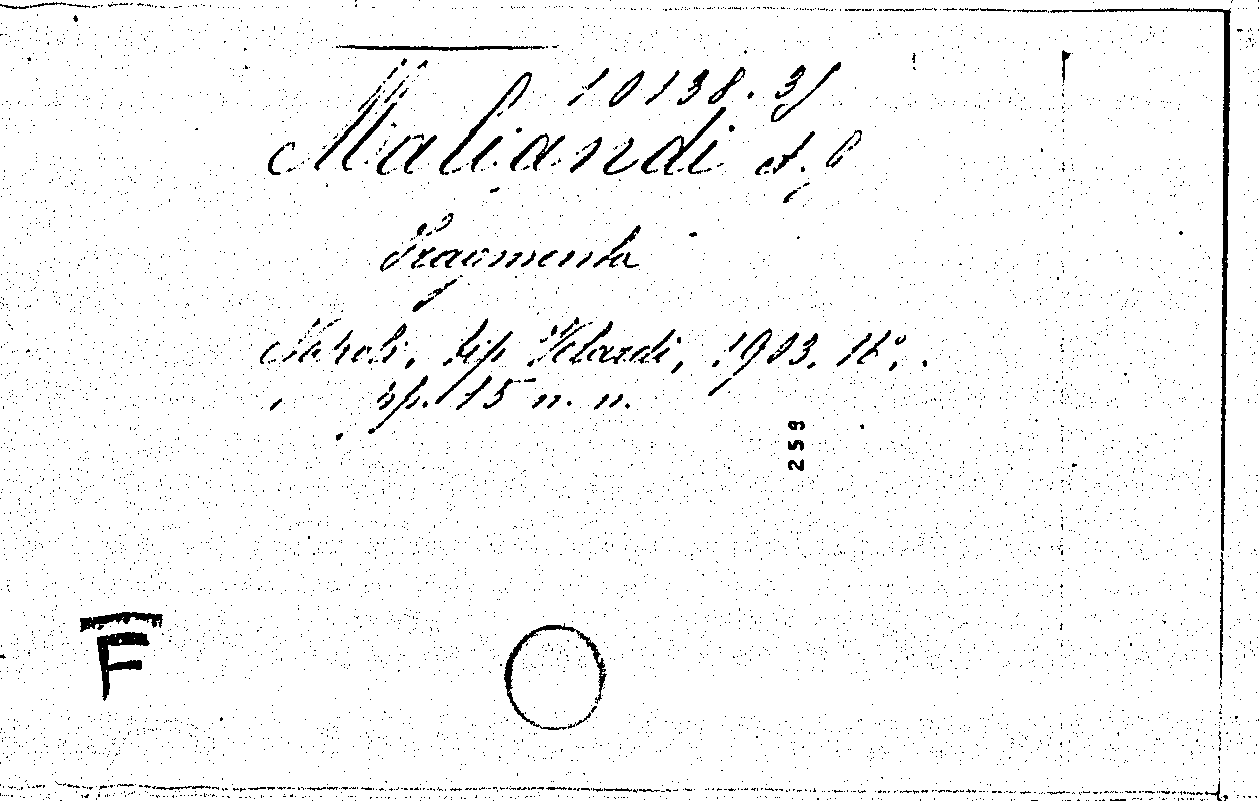 10138.3)
Maliandi A.
Fragmenta
Napoli, tip Velardi, 1903. 16°.
pp. 15 n. n.
259
F